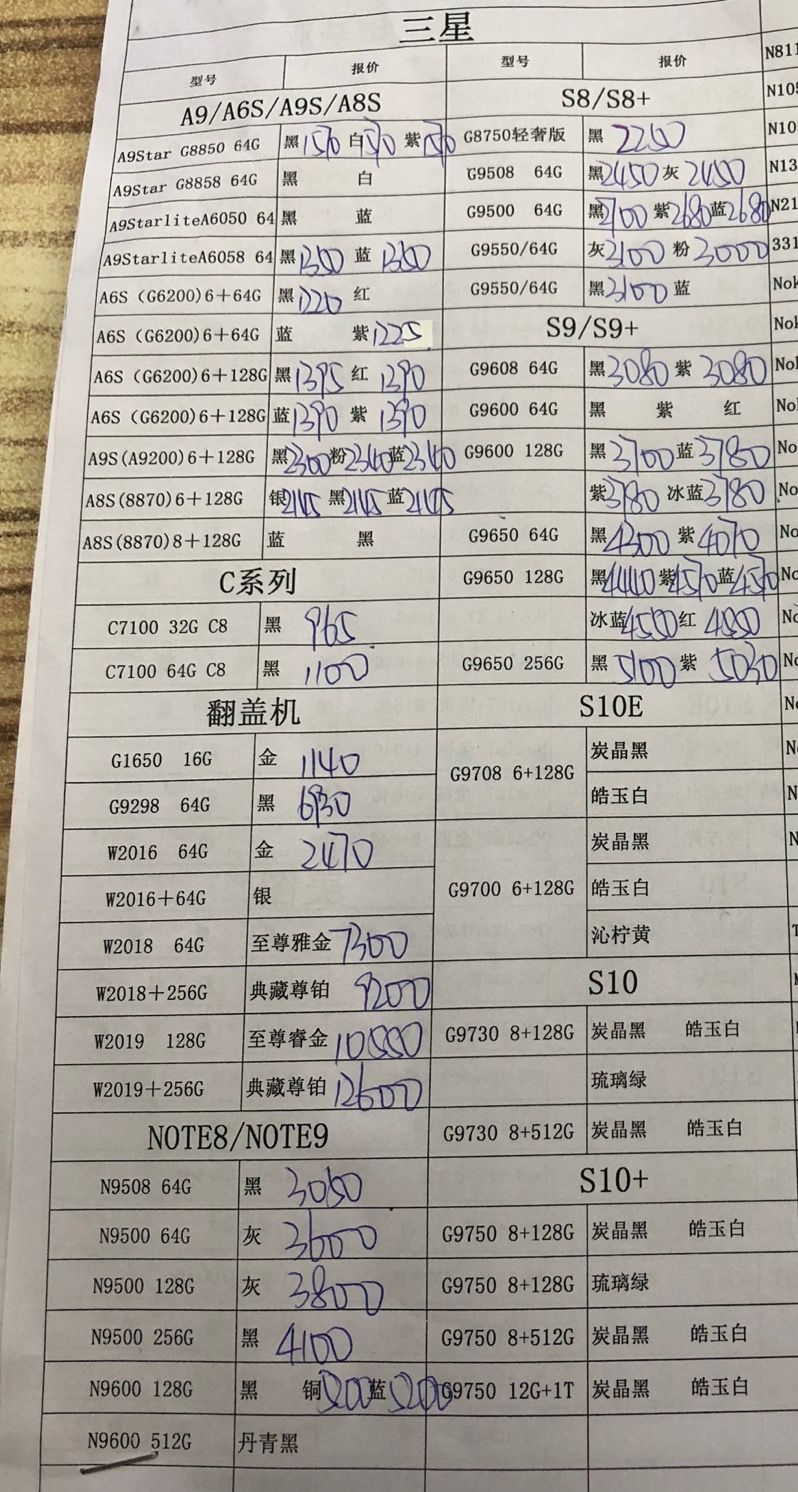 三星
型号 报价 型号 报价
A9/A6S/A9S/A8S
A9Star G8850 64G 黑1570 白1570 紫1570
A9Star G8858 64G 黑 白
A9StarliteA6050 64 黑 蓝
A9StarliteA6058 64 黑1350 蓝1350
A6S (G6200)6+64G 黑1220 红
A6S (G6200)6+64G 蓝 紫1225
A6S (G6200)6+128G 黑1395 红1390
A6S (G6200)6+128G 蓝1390 紫1390
A9S(A9200)6+128G 黑2300粉2340蓝2340
A8S(8870)6+128G 银2145 黑2145 蓝2145
A8S(8870)8+128G 蓝 黑
C系列
C7100 32G C8 黑 965
C7100 64G C8 黑 1100
翻盖机
G1650 16G 金 1140
G9298 64G 黑
W2016 64G 金 2470
W2016+64G 银
W2018 64G 至尊雅金7300
W2018+256G 典藏尊铂 9200
W2019 128G 至尊睿金10550
W2019+256G 典藏尊铂12600
NOTE8/NOTE9
N9508 64G 黑 3050
N9500 64G 灰 3600
N9500 128G 灰 3800
N9500 256G 黑 4100
N9600 128G 黑 铜5200蓝5200
N9600 512G 丹青黑
S8/S8+
G8750轻奢版 黑 2250
G9508 64G 黑2450灰 2450
G9500 64G 黑2700 紫2680蓝2680
G9550/64G 灰3100 粉3000
G9550/64G 黑3100蓝
S9/S9+
G9608 64G 黑3080 紫3080
G9600 64G 黑 紫 红
G9600 128G 黑3700蓝3780
紫3780 冰蓝3780
G9650 64G 黑4300 紫4070
G9650 128G 黑4440紫4570蓝4570
冰蓝4550红4550
G9650 256G 黑5100紫5030
S10E
G9708 6+128G 炭晶黑
皓玉白
G9700 6+128G 炭晶黑
皓玉白
沁柠黄
S10
G9730 8+128G 炭晶黑 皓玉白
琉璃绿
G9730 8+512G 炭晶黑 皓玉白
S10+
G9750 8+128G 炭晶黑 皓玉白
G9750 8+128G 琉璃绿
G9750 8+512G 炭晶黑 皓玉白
G9750 12G+1T 炭晶黑 皓玉白
N811
N105
N10
N13
N21
331
Nok
Nok
Nok
No
No
No